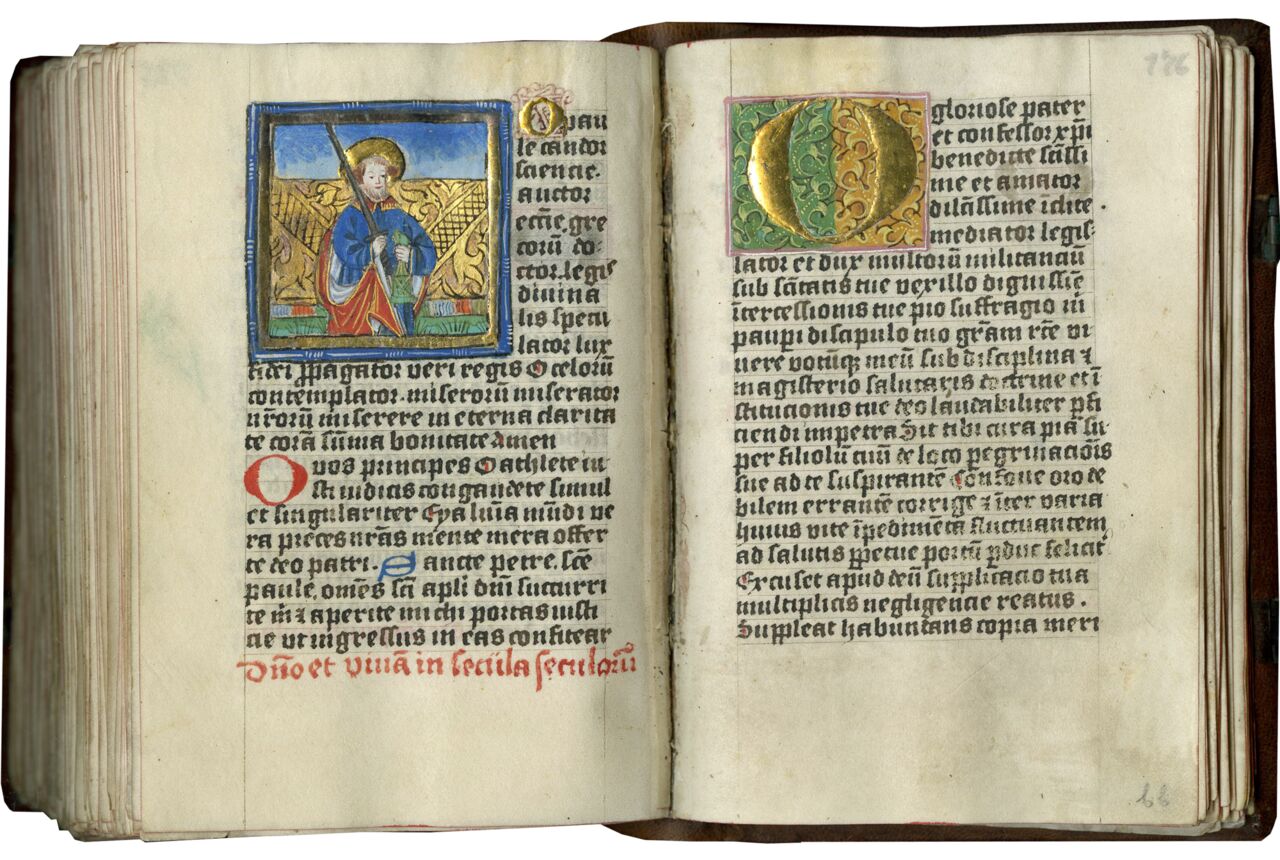 O pau
le candor
sciencie.
auctor
eccĩe. gre
corũ do-
ctor. legis
divina
lis specu
lator lux
fidei ꝓpagator veri regis O celorũ
contemplator. miserorũ miserator
nr̃orũ miserere in eterna clarita
te corã sũma bonitate Amen
O vos principes O athlete iu
sti iudicis congaudete simul
et singulariter Eya luĩa mũdi ve
ra preces nr̃as mente mera offer
te deo patri. Sancte petre. sc̃e
paule. om̃es sc̃i apl̃i dñi succurri
te m̃ ⁊ aperite michi portas iusti
cie ut ingressus in eas confitear
dño et vivã in secũla seculorũ
176
O gloriose pater
et confessor xp̃i
benedicte sc̃issi
me et amator
dilc̃issime ĩclite.
mediator legis-
lator et dux multorũ militanciũ
sub sc̃itatis tue vexillo dignissiẽ
ĩtercessionis tue pio suffragio m̃
paupi discipulo tuo grãm rc̃e vi
vere votũqꝫ meũ sub disciplina ⁊
magisterio salutaris doctrine et ĩ
stitucionis tue deo laudabiliter ꝑfi
ciendi impetra Sit tibi cura pia su
per filiolũ tuũ de loco pegrinaciõis
sue ad te suspirantẽ Confove oro de
bilem errantẽ corrige ⁊ ĩter varia
huius vite ĩpedimẽta fluctuantem
ad salutis ꝑpetue portũ ꝑduc felicit̃
Excuset apud deũ supplicacio tua
multiplicis negligencie reatus.
Suppleat habundans copia meri
68